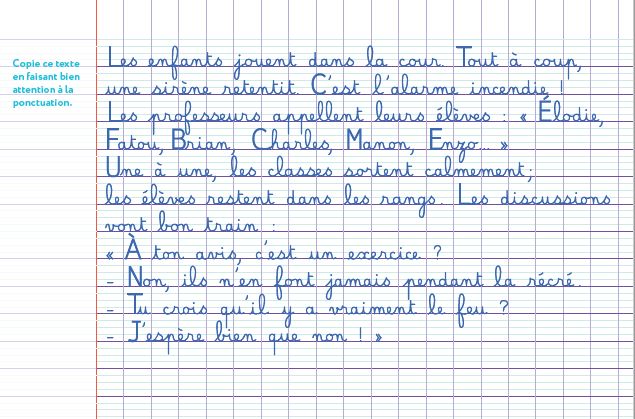 Copie ce texte
en faisant bien
attention à la
ponctuation.
Les enfants jouent dans la cour. Tout à coup,
une sirène retentit. C'est l'alarme incendie !
Les professeurs appellent leurs élèves : « Élodie,
Fatou, Brian, Charles, Manon, Enzo... »
Une à une, les classes sortent calmement ;
les élèves restent dans les rangs. Les discussions
vont bon train :
« À ton avis, c'est un exercice ?
- Non, ils n'en font jamais pendant la récré.
- Tu crois qu'il y a vraiment le feu ?
- J'espère bien que non ! »